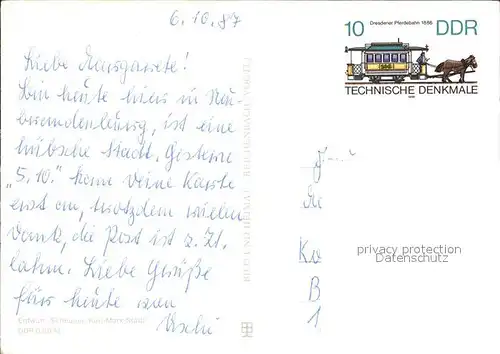 6.10.87
Liebe Margarete!
Bin heute hier in Neu
brandenburg, ist eine
hübsche Stadt. Gestern
"5.10." kam Deine Karte
erst an, trotzdem vielen
Dank, die Post ist z. Zt.
lahm. Liebe Grüße
für heute von
Uschi
10 Dresdener Pferdebahn 1886 DDR
TECHNISCHE DENKMALE
Ko
B
1
privacy protection
VERSANDANTIQUARIAT